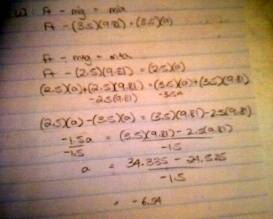 Ft - mg = ma
Ft - (3.5)(9.81) = (3.5)(a)
Ft - mg = ma
Ft - (2.5)(9.81) = (2.5)(a)
(2.5)(a)+(2.5)(9.81) = (3.5)(a)+(3.5)(9.81)
-2.5(9.81) -3.5a
(2.5)(a) - (3.5)(a) = (3.5)(9.81) - 2.5(9.81)
-1.5a = (3.5)(9.81) - 2.5(9.81)
-1.5 -1.5
a = 34.335 - 24.525
-1.5
= -6.54